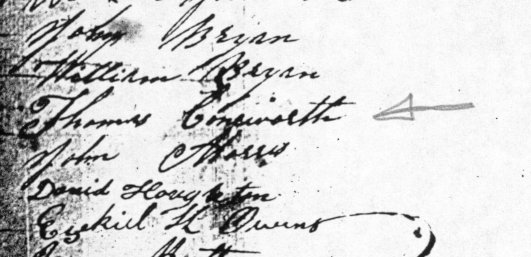 John Bryan
William Bryan
Thomas Consiworth
John Morris
David Houghton
Ezekiel H Owens